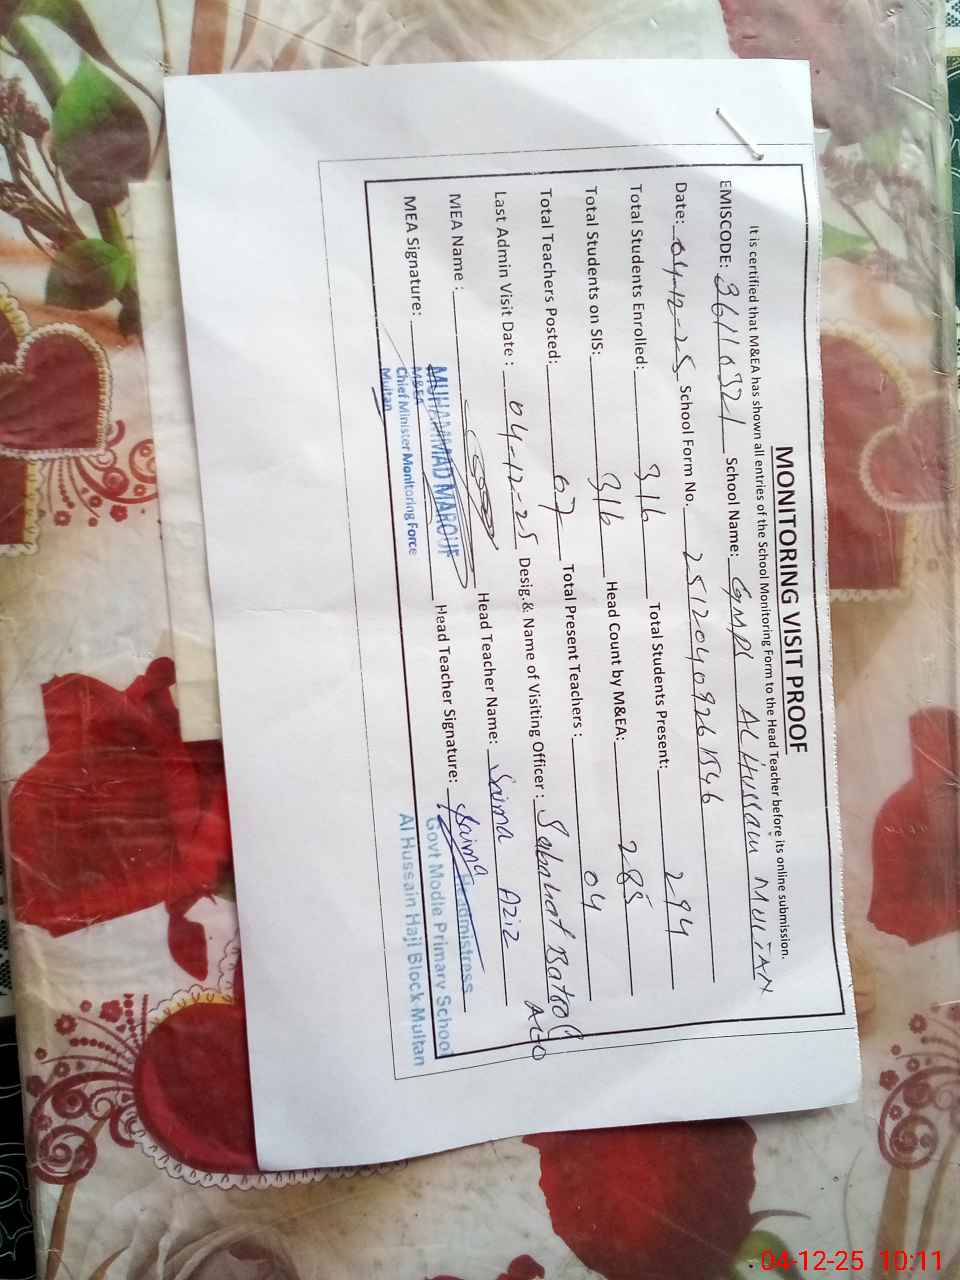 MONITORING VISIT PROOF
It is certified that M&EA has shown all entries of the School Monitoring Form to the Head Teacher before its online submission.
EMISCODE: 361110321 School Name: GMPS AL Hussain MULTAN
Date: 04-12-25 School Form No. 2512040926
Total Students Enrolled: 316 Total Students Present: 294
Total Students on SIS: 316 Head Count by M&EA: 285
Total Teachers Posted: 07 Total Present Teachers : 04
Last Admin Visit Date : 04-12-25 Desig.& Name of Visiting Officer : Batool
MEA Name : Head Teacher Name: Saima Aziz
MEA Signature: Head Teacher Signature: Saima
MUHAMMAD MAROUF
M&EA
Chief Minister Monitoring Force
Multan
Headmistress
Govt Modle Primary School
Al Hussain Haji Block Multan
04-12-25 10:11